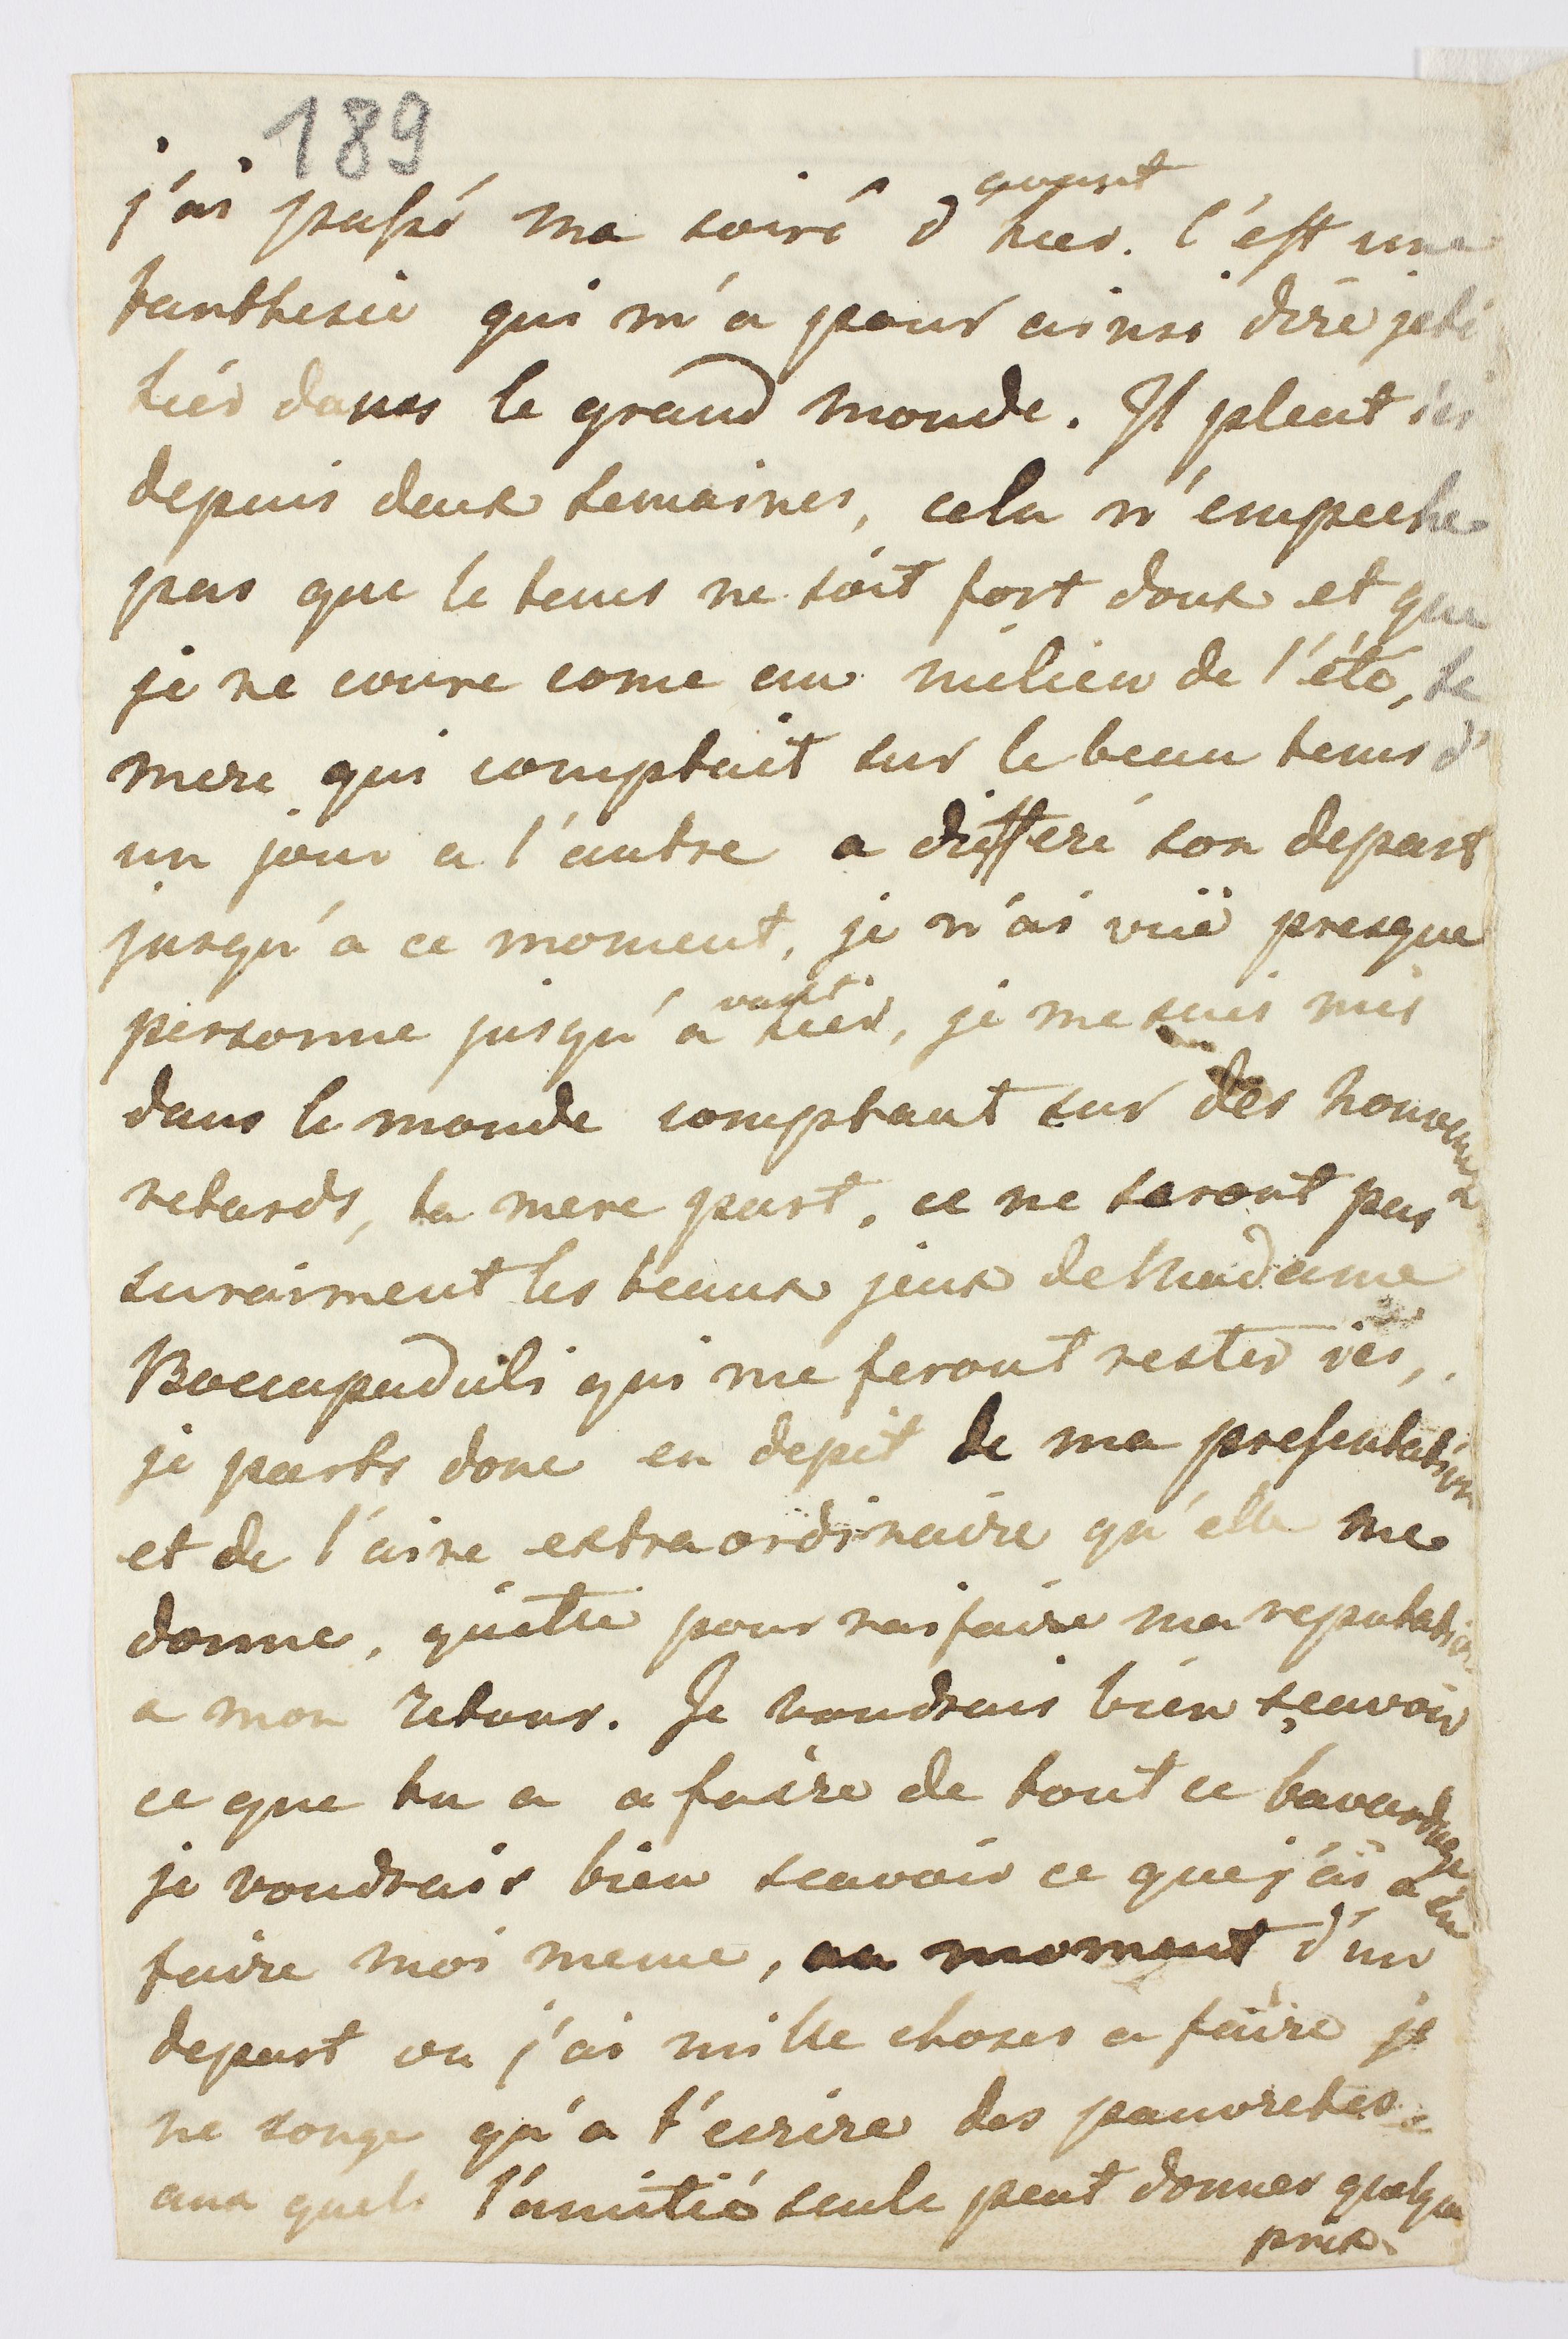 189
j'ai passé ma soiré d'avant hier. C'est une
fanthesie qui m'a pour ainsi dire jeté
hier dans le grand monde. Il pleut ici
depuis deux semaines, cela n'empeche
pas que le tems ne soit fort doux et que
je ne coure come au milieu de l'été, ta
mere qui comptait sur le beau tems d'
un jour a l'autre a differé son depart
jusqu'a ce moment, je n'ai vuë presque
personne jusqu'a vant hier, je me suis mis
dans le monde comptant sur des nouveaux
retards, ta mere part, ce ne seront pas
suraiment les beaux jeux de Madame
Boccapaduli qui me feront rester ici,
je parts donc en depit de ma presentation
et de l'aire extraordinaire qu'elle me
donne, quitte pour raifaire ma reputation
a mon retour. Je voudrais bien sçavoir
ce que tu a a faire de tout ce bavardage
je voudrais bien scavoir ce que j'ai a en
faire moi meme, au moment d'un
depart ou j'ai mille choses a faire je
ne songe qu'a t'ecrire des pauvretes
aux quels l'amitié seule peut donner quelque
prix.